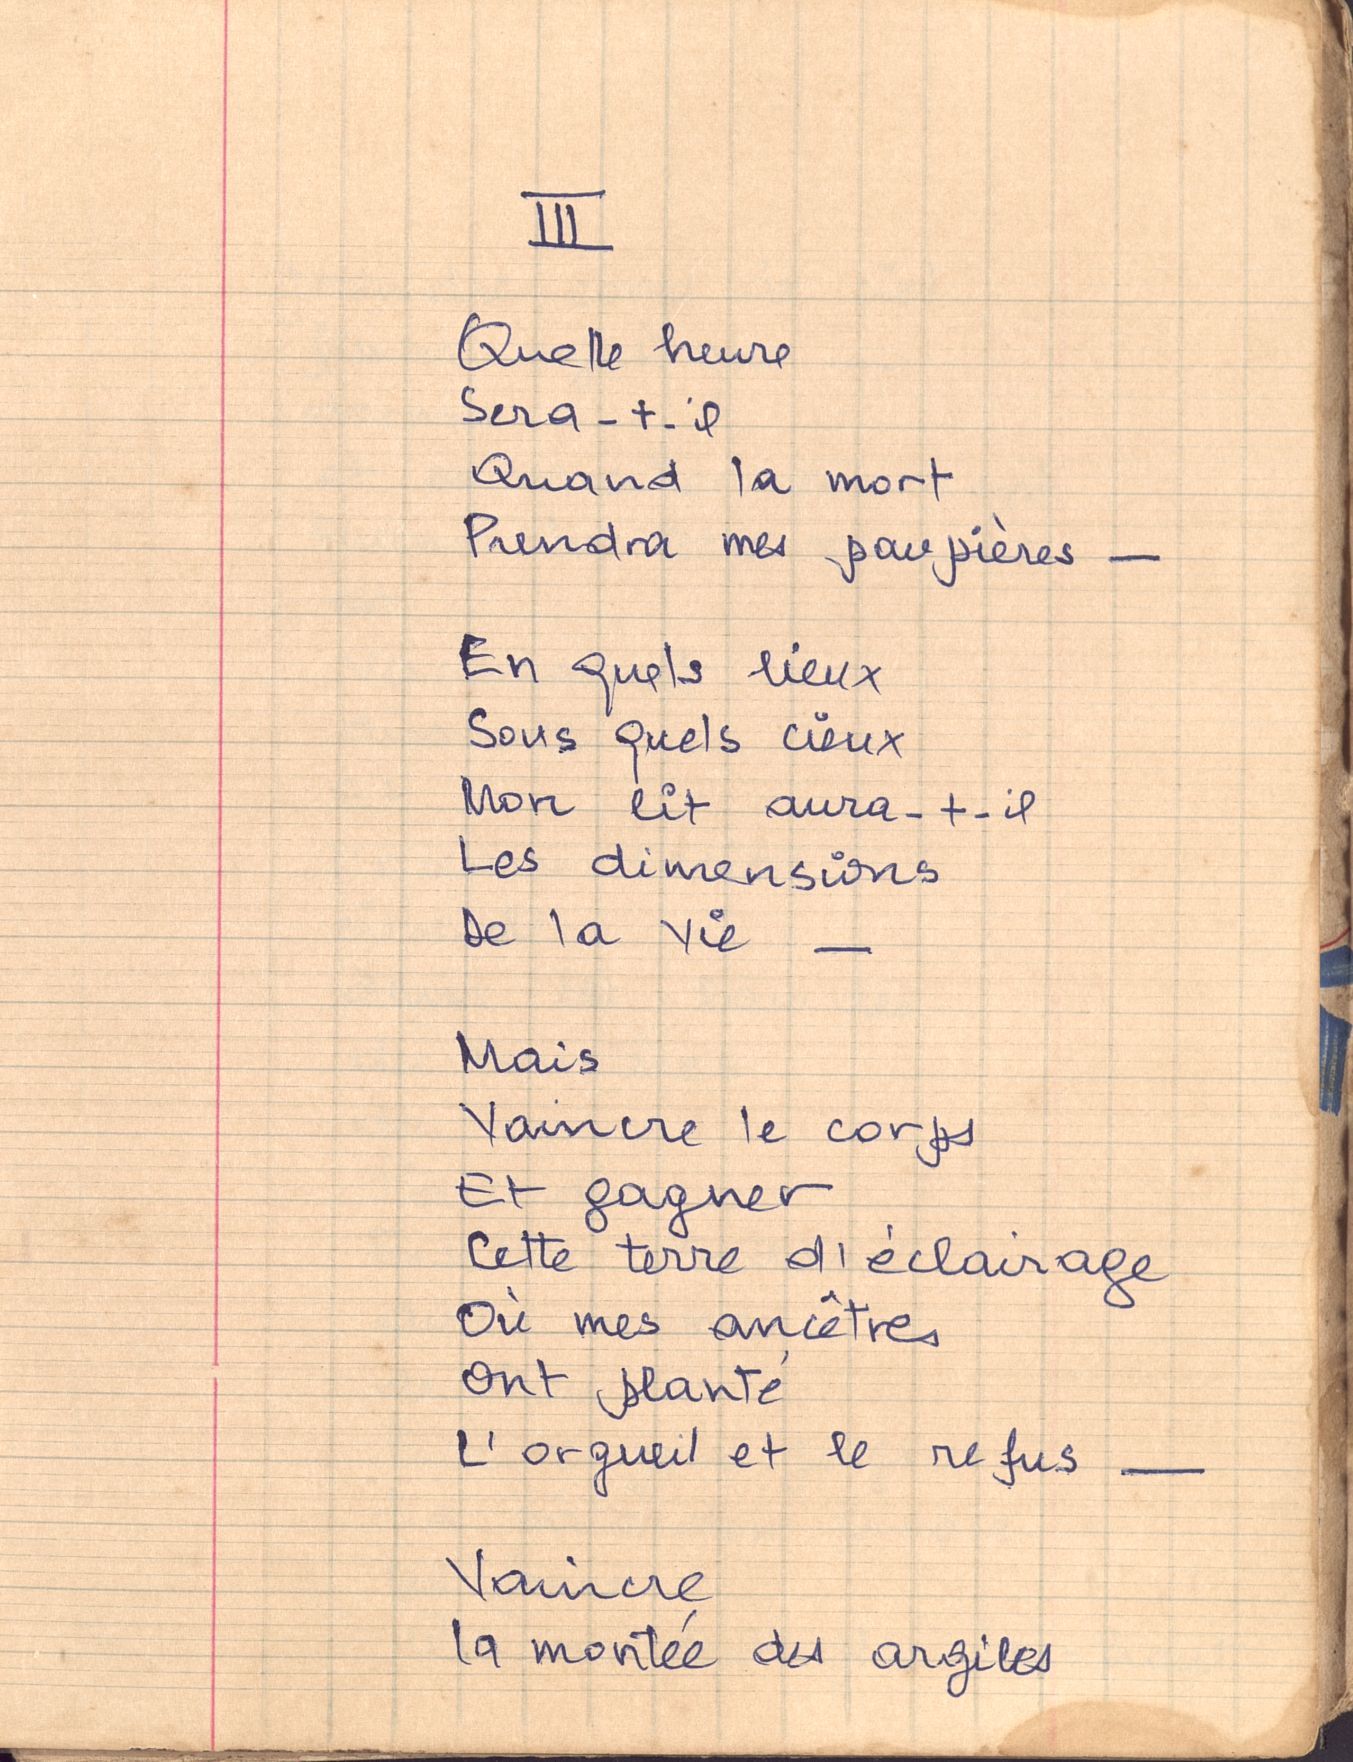 III
Quelle heure
Sera-t-il
Quand la mort
Prendra mes paupières —
En quels lieux
Sous quels cieux
Mon lit aura-t-il
Les dimensions
De la vie —
Mais
Vaincre le corps
Et gagner
Cette terre d'éclairage
Où mes ancêtres
Ont planté
L'orgueil et le refus —
Vaincre
la montée des argiles